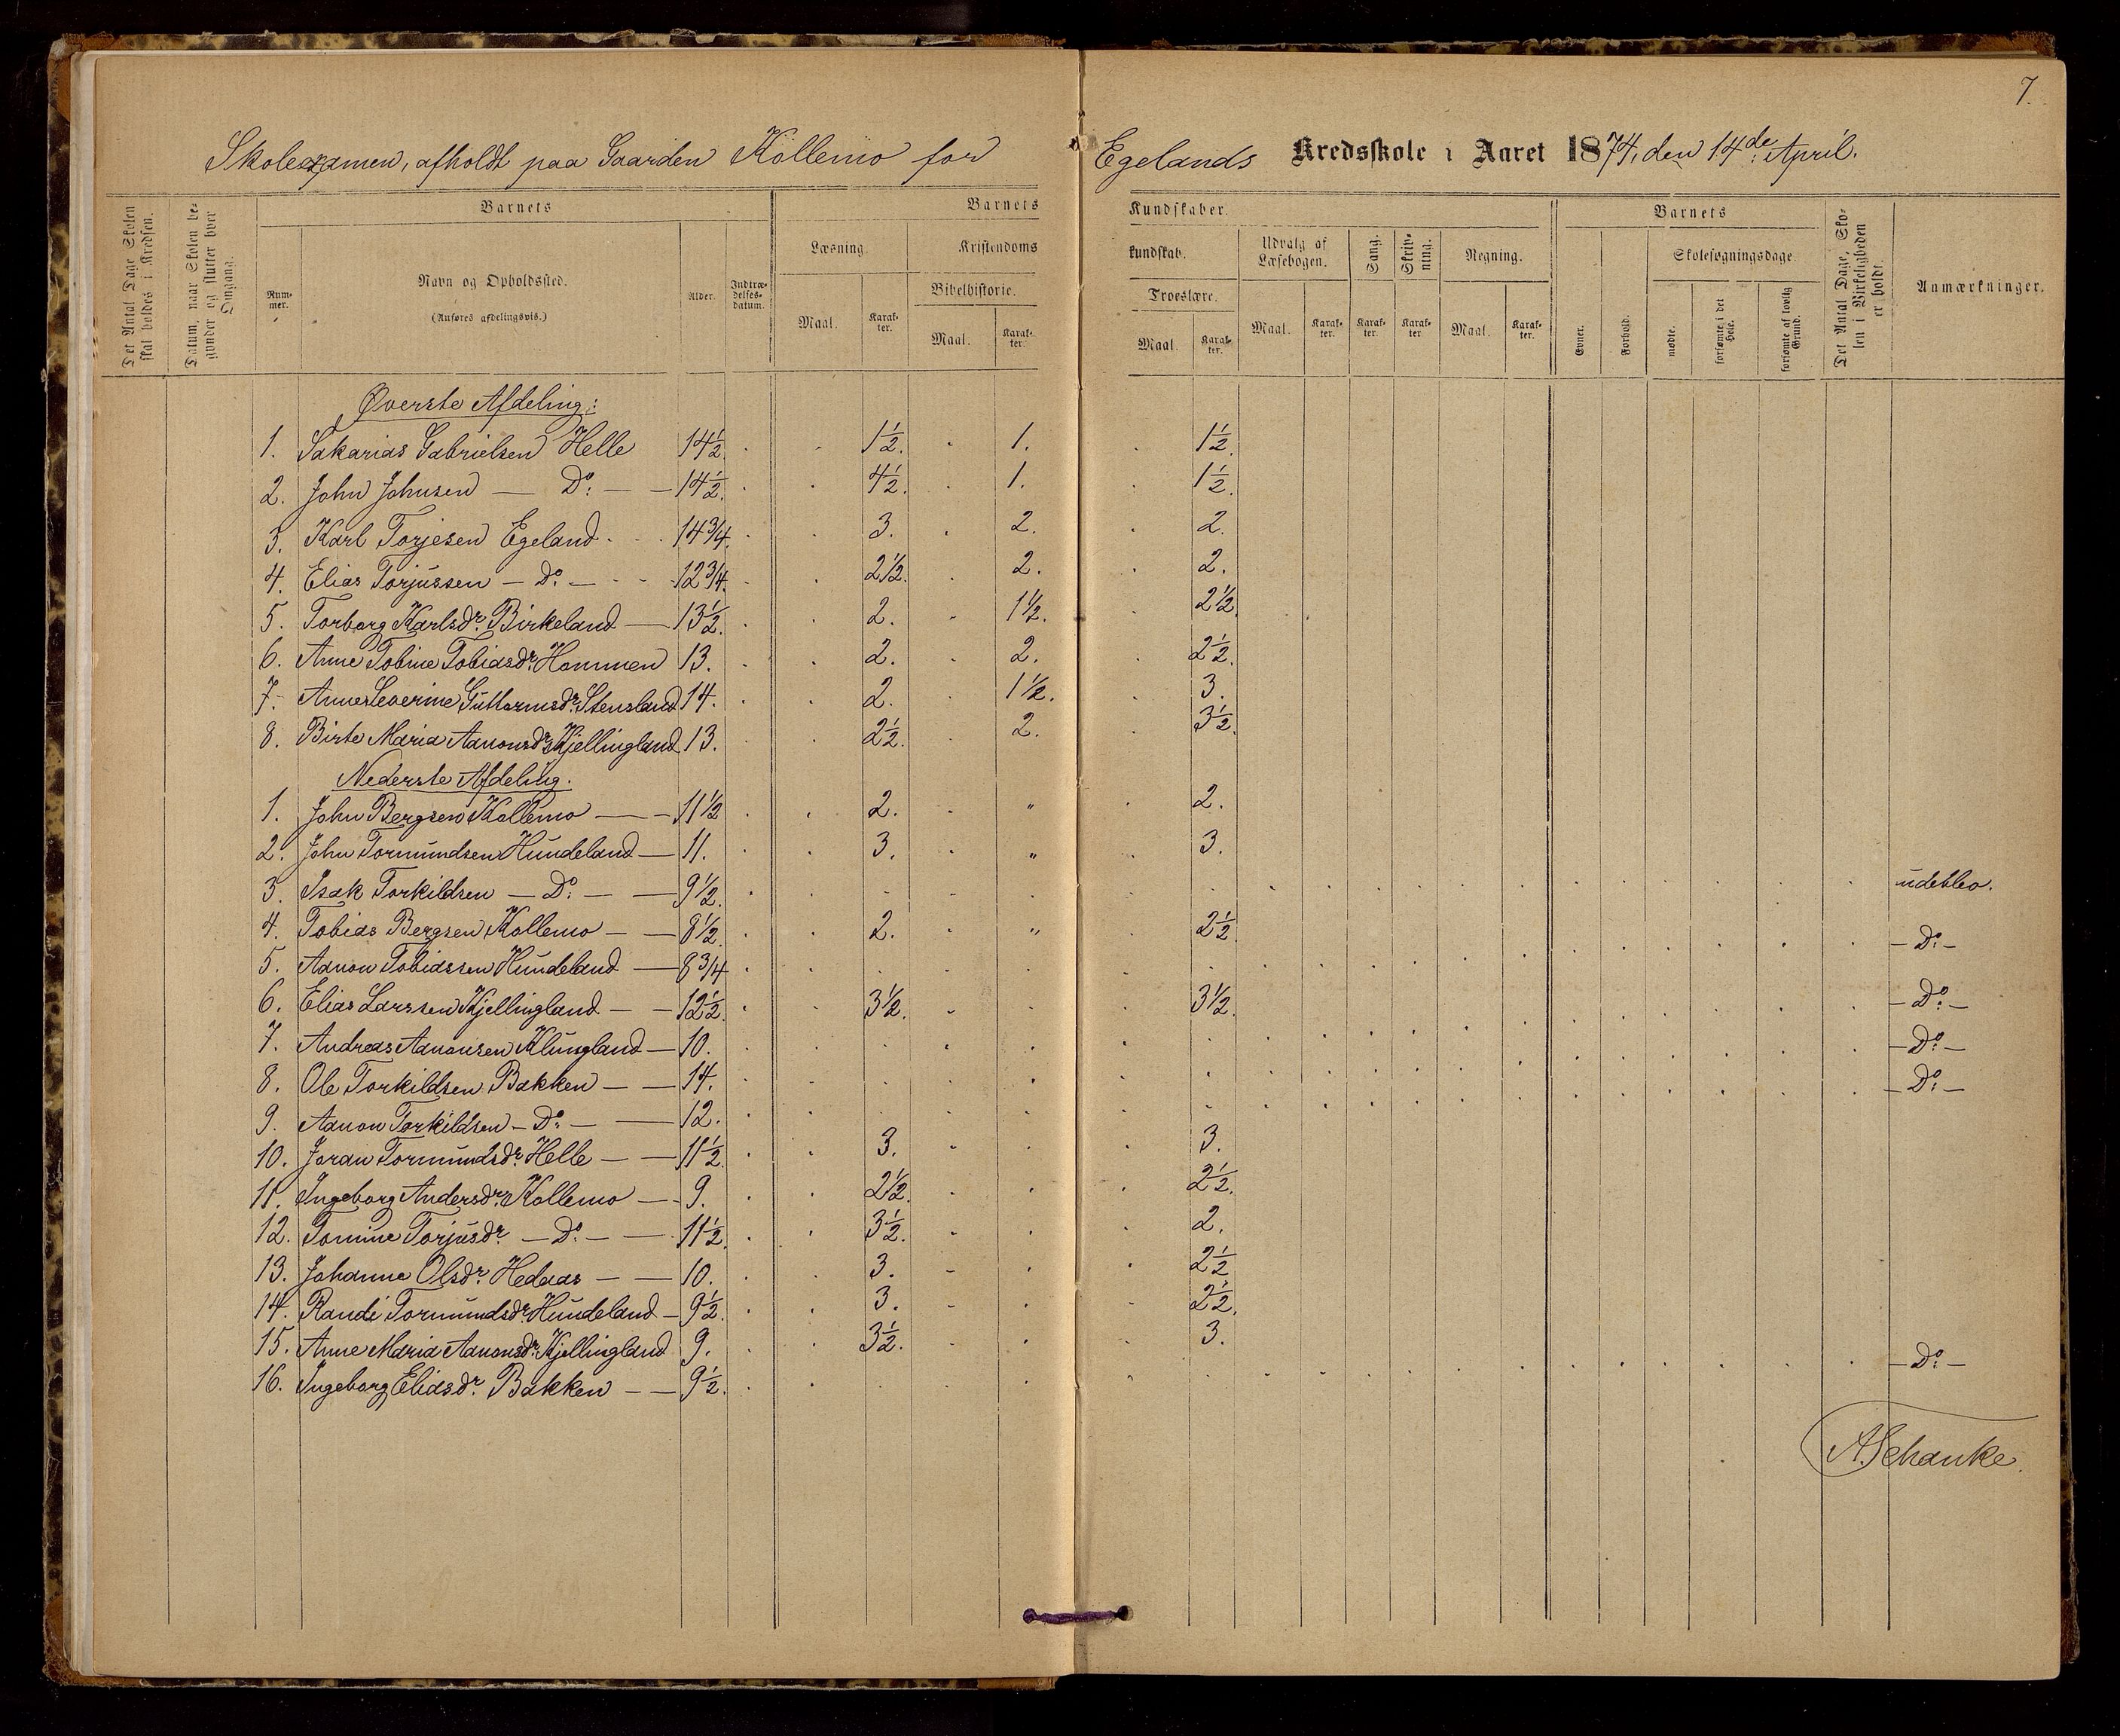 7.
Skolexamen, afholdt paa Gaarden Kollemo for Egelands Kredsskole i Aaret 1874, den 14de April.
Det Antal Dage Skolen skal holdes i Kredsen.
Datum, naar Skolen begynder og slutter hver Omgang.
Barnets
Nummer.
Navn og Opholdssted.
(Anføres afdelingsvis.)
Alder.
Indtrædelsesdatum.
Barnets Kundskaber.
Læsning.
Maal.
Karakter.
Kristendomskundskab.
Bibelhistorie.
Maal.
Karakter.
Troeslære.
Maal.
Karakter.
Udvalg af Læsebogen.
Maal.
Karakter.
Sang.
Karakter.
Skrivning.
Karakter
Regning.
Maal.
Karakter.
Barnets
Evner.
Forhold.
Skolesøgningsdage.
mødte.
forsømte i det Hele.
forsømte af lovlig Grund.
Det Antal Dage, Skolen i Virkeligheden er holdt.
Anmærkninger.
Øverste Afdeling:
1. Sakarias Gabrielsen Helle 14½. 1½. 1. 1½.
2. John Johnsen — Do: — 14½. 4½. 1. 1½.
3. Karl Torjesen Egeland 14¾. 3. 2. 2.
4. Elias Torjussen — Do. — 12¾. 2½. 2. 2.
5. Torborg Karlsdr. Birkeland — 13½. 2. 1½. 2½.
6. Anne Tobine Tobiasdr. Hommen 13. 2. 2. 2½.
7. Anne Severine Guttormsdr. Stensland 14. 2. 1½. 3.
8. Birte Maria Aanonsdr. Kjellingland 13. 2½. 2. 3½.
Nederste Afdeling.
1. John Bergsen Kollemo — 11½ 2. " 2.
2. John Tormundsen Hundeland — 11. 3. " 3.
3. Isak Torkildsen — Do: — 9½. udeblev.
4. Tobias Bergsen Kollemo — 8½. 2. " 2½.
5. Aanon Tobiassen Hundeland — 8¾ — Do: —
6. Elias Larssen Kjellingland — 12½. 3½. 3½.
7. Andreas Aanonsen Klungland — 10. — Do: —
8. Ole Torkildsen Bakken — 14. — Do: —
9. Aanon Torkildsen — Do: — 12. — Do: —
10. Joran Tormundsdr. Helle — 11½. 3. 3.
11. Ingeborg Andersdr. Kollemo — 9. 2½. 2½.
12. Tomine Torjusdr. — Do: — 11½. 3½. 2.
13. Johanne Olsdr. Hedaas — 10. 3. 2½
14. Randi Tormundsdr. Hundeland — 9½. 3. 2½.
15. Anne Maria Aanonsdr. Kjellingland 9. 3½. 3.
16. Ingeborg Eliasdr. Bakken — 9½. — Do: —
A. Schanke.